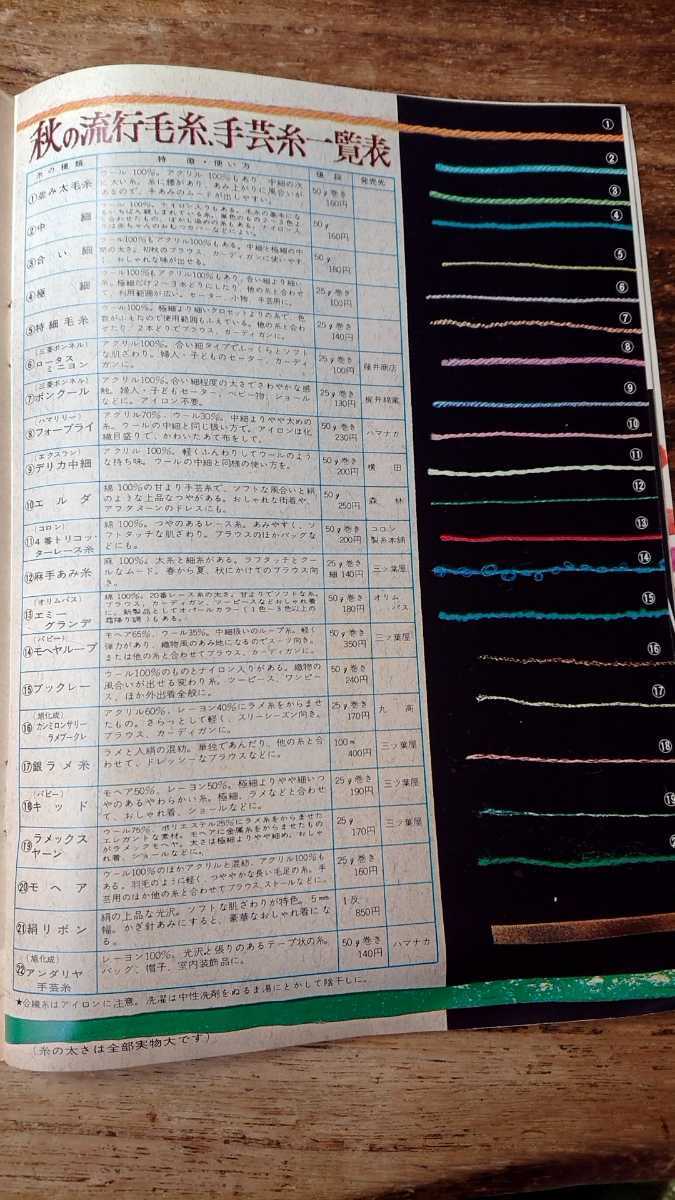 秋の流行毛糸、手芸糸一覧表
糸の種類 特徴・使い方 値段 発売元
①並み太毛糸 ウール100%。アクリル100%もあり、中細の次に太い糸。糸に腰があり、あみ上がりに風合いがあるので、手あみのムードが出しやすい。 50g巻き 160円
②中細 ウール100%、ナイロン入りもある。 50g 160円
③合い細 ウール100%もアクリル100%もある。中細と極細の中間の太さ。初秋のブラウス、カーディガンに使いやすく、おしゃれな味が出せる。 50g 180円
④極細 ウール100%もアクリル100%もあり、合い細より細い糸。極細だけ2〜3本どりにしたり、他の糸と合わせて、利用範囲が広い。セーター、小物、手芸用に。 25g巻き 100円
⑤特細毛糸 ウール100%。極細より細くクロセットよりの糸で、色数がふえたので使用範囲もふえている。他の糸と合わせたり、2本どりでブラウス、カーディガンに。 25g巻き 140円
(三菱ボンネル)
⑥ロータスミニヨン アクリル100%。合い細タイプでしっくらとソフトな肌ざわり。婦人・子どものセーター、カーディガンに。 25g巻き 100円 藤井商店
(三菱ボンネル)
⑦ボンクール アクリル100%。合い細程度の太さでさわやかな感触。婦人・子どもセーター、ベビー物、ショールなどに。アイロン不要。 25g巻き 130円 梶井綿業
(ハマリリー)
⑧フォープライ アクリル70%、ウール30%。中細よりやや太めの糸。ウールの中細と同じ扱い方で。アイロンは化繊目盛りで、かわいたあて布をして。 50g巻き 230円 ハマナカ
(エクスラン)
⑨デリカ中細 アクリル100%。軽くふんわりしてウールのような持ち味。ウールの中細と同様の使い方を。 50g巻き 200円 横田
⑩エルダ 綿100%の甘より手芸糸で、ソフトな風合いと絹のような上品なつやがある。おしゃれな街着や、アフタヌーンのドレスにも。 50g 250円 森林
(コロン)
⑪4番トリコッターレース糸 綿100%。つやのあるレース糸。あみやすく、ソフトタッチな肌ざわり。ブラウスのほかバッグなどにも。 50g巻き 200円 コロン製糸本舗
⑫麻手あみ糸 麻100%。太糸と細糸がある。ラフタッチとクールなムード。春から夏、秋にかけてのブラウス向き。 25g巻き 細140円 三ツ葉屋
(オリムパス)
⑬エミーグランデ 綿100%。20番レース糸の太さ。甘よりでソフトな糸。ブラウス、カーディガン、ツーピースなどおしゃれ着に。新製品としてオパールカラー(1色〜3色以上の霜降り調)もある。 50g巻き 180円 オリムパス
(パピー)
⑭モヘヤループ モヘア65%、ウール35%。中細扱いのループ糸。軽く弾力があり、織物風のあみ地になるのでスーツ向き。または他の糸と合わせてブラウス、カーディガンに。 50g巻き 350円 三ツ葉屋
⑮ブックレー ウール100%のものとナイロン入りがある。織物の風合いが出せる変わり糸。ツーピース、ワンピース、ほか外出着全般に。 50g巻き 240円
(旭化成)
⑯カシミロンサリーラメブークレ アクリル60%、レーヨン40%にラメ糸をからませたもの。さらっとして軽く、スリーシーズン向き。ブラウス、カーディガンに。 25g巻き 170円 九高
⑰銀ラメ糸 ラメと人絹の混紡。単独であんだり、他の糸と合わせて、ドレッシーなブラウスなどに。 100m 400円 三ツ葉屋
(パピー)
⑱キッド モヘア50%、レーヨン50%。極細よりやや細いつやのあるやわらかい糸。極細、ラメなどと合わせて、おしゃれ着、ショールなどに。 25g巻き 190円 三ツ葉屋
⑲ラメックスヤーン ウール75%、ポリエステル25%にラメ糸をからませたエレガントな素材。モヘアに金属糸をからませたものがラメックモヘヤ。太さは極細よりやや細め。おしゃれ着、ショールなどに。 25g 170円 三ツ葉屋
⑳モヘア ウール100%のほかアクリルと混紡、アクリル100%もある。羽毛のように軽く、つややかな長い毛足の糸。手芸用のほか他の糸と合わせてブラウス、ストールなどに。 25g巻き 160円
㉑絹リボン 絹の上品な光沢。ソフトな肌ざわりが特色。5mm幅。かぎ針あみにすると、豪華なおしゃれ着になる。 1反 850円
(旭化成)
㉒アンダリヤ手芸糸 レーヨン100%。光沢と張りのあるテープ状の糸。バッグ、帽子、室内装飾品に。 50g巻き 140円 ハマナカ
★合繊糸はアイロンに注意。洗濯は中性洗剤をぬるま湯にとかして陰干しに。
(糸の太さは全部実物大です)
①
②
③
④
⑤
⑥
⑦
⑧
⑨
⑩
⑪
⑫
⑬
⑭
⑮
⑯
⑰
⑱
⑲